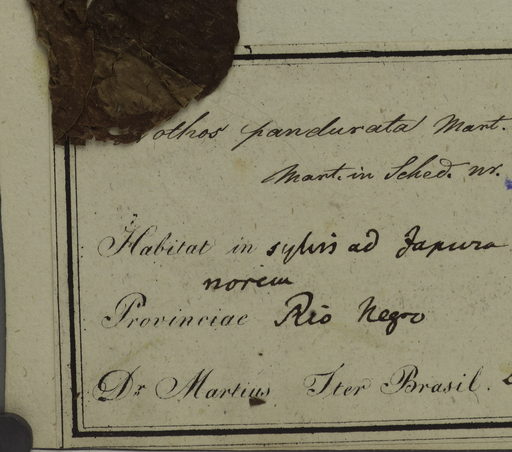 othos pandurata Mart.
Mart. in Sched. nr.
Habitat in sylvis ad Japura
Provinciae Rio Negro
Dr Martius Iter Brasil.